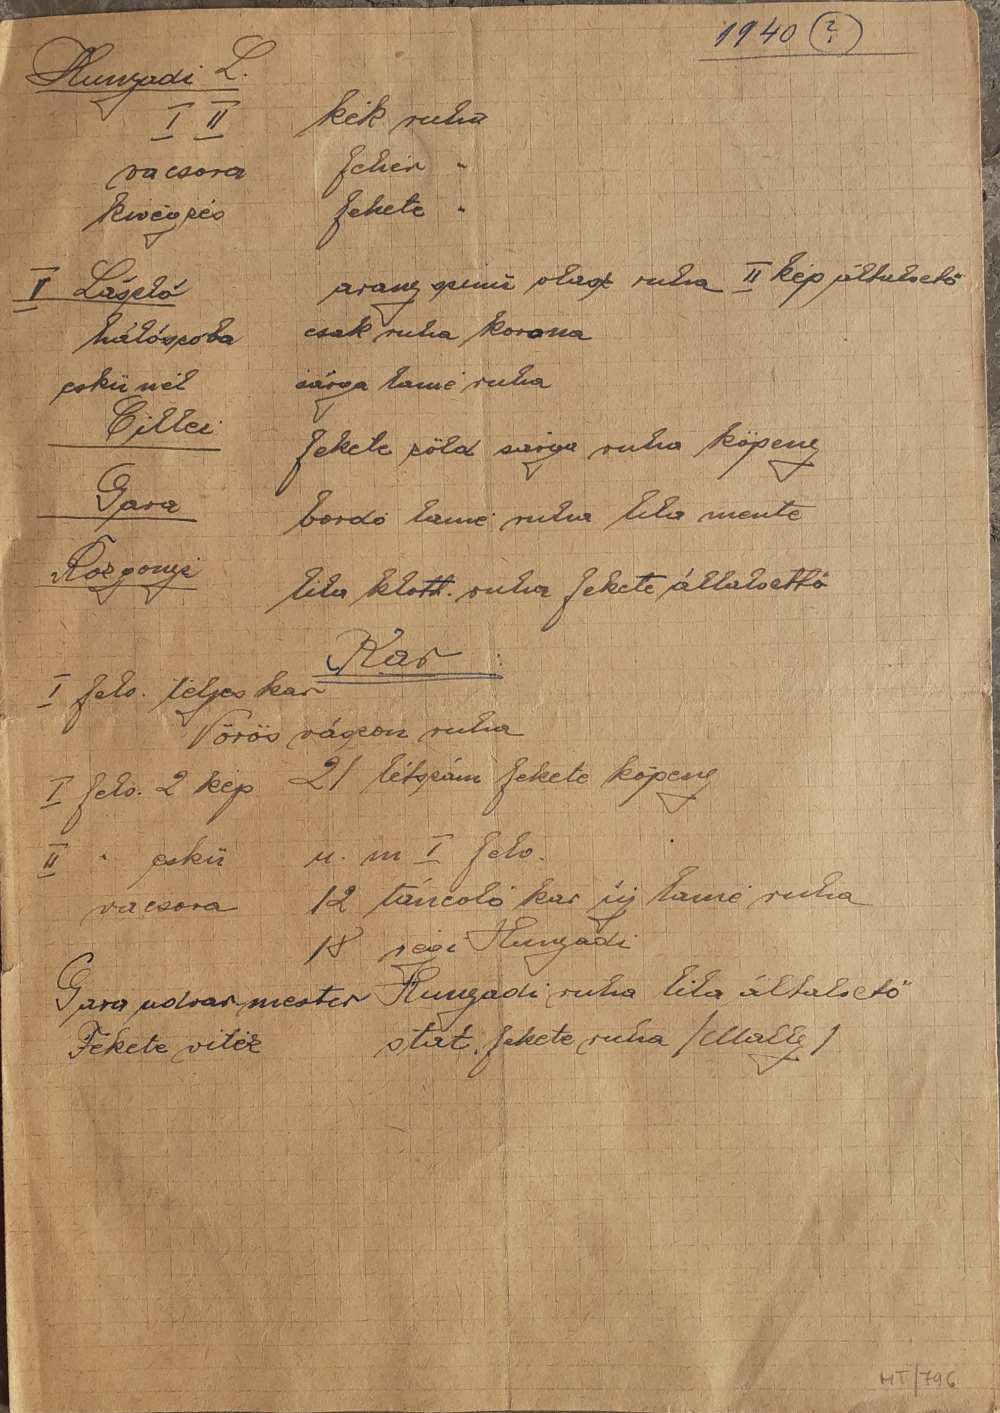 1940 (?)
Hunyadi L.
I II kék ruha
vacsora fehér "
kivégzés fekete "
V László arany szinü olasz ruha II kép általvető
hálószoba csak ruha korona
eskünél sárga lamé ruha
Cillei fekete zöld sárga ruha köpeny
Gara bordó lamé ruha lila mente
Rozgonyi lila klott. ruha fekete általvető
Kar
I felv. teljes kar
Vörös vászon ruha
I felv. 2 kép 21 létszám fekete köpeny
II " eskü u. m I felv.
vacsora 12 táncoló kar új lamé ruha
18 régi Hunyadi
Gara udvarmester Hunyadi ruha lila általvető
Fekete vitéz stat. fekete ruha /Mally/
MT/796